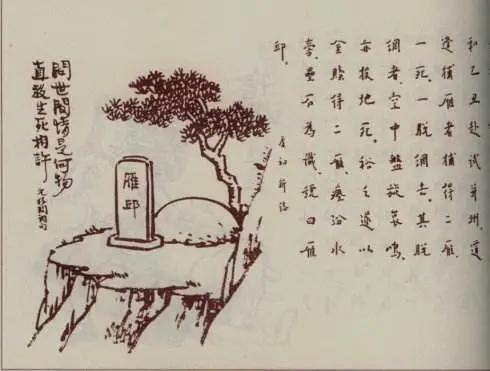 和乙丑赴試并州,道
逢捕雁者捕得二雁,
一死,一脱網去。其脱
網者,空中盤旋哀鳴,
亦投地死。裕之遂以
金贖得二雁,瘞汾水
旁,壘石為識,號曰雁
邱。
雁邱
問世間情是何物
直教生死相許